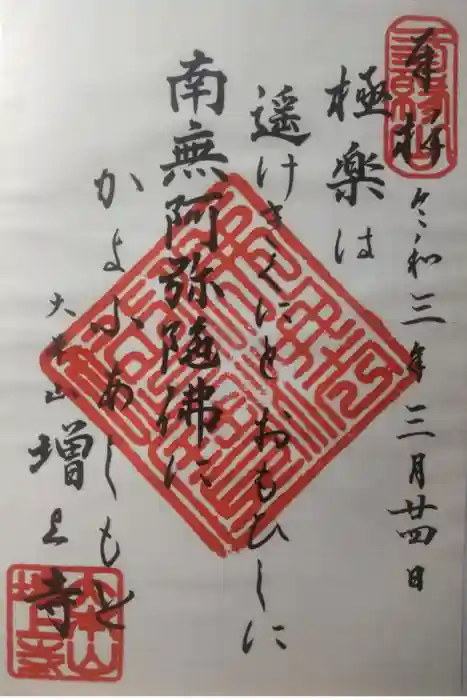 奉拝
令和三年三月廿四日
極楽は
遥けきくにとおもひしに
南無阿弥陀佛に
かよふあしもと
大本山
増上寺